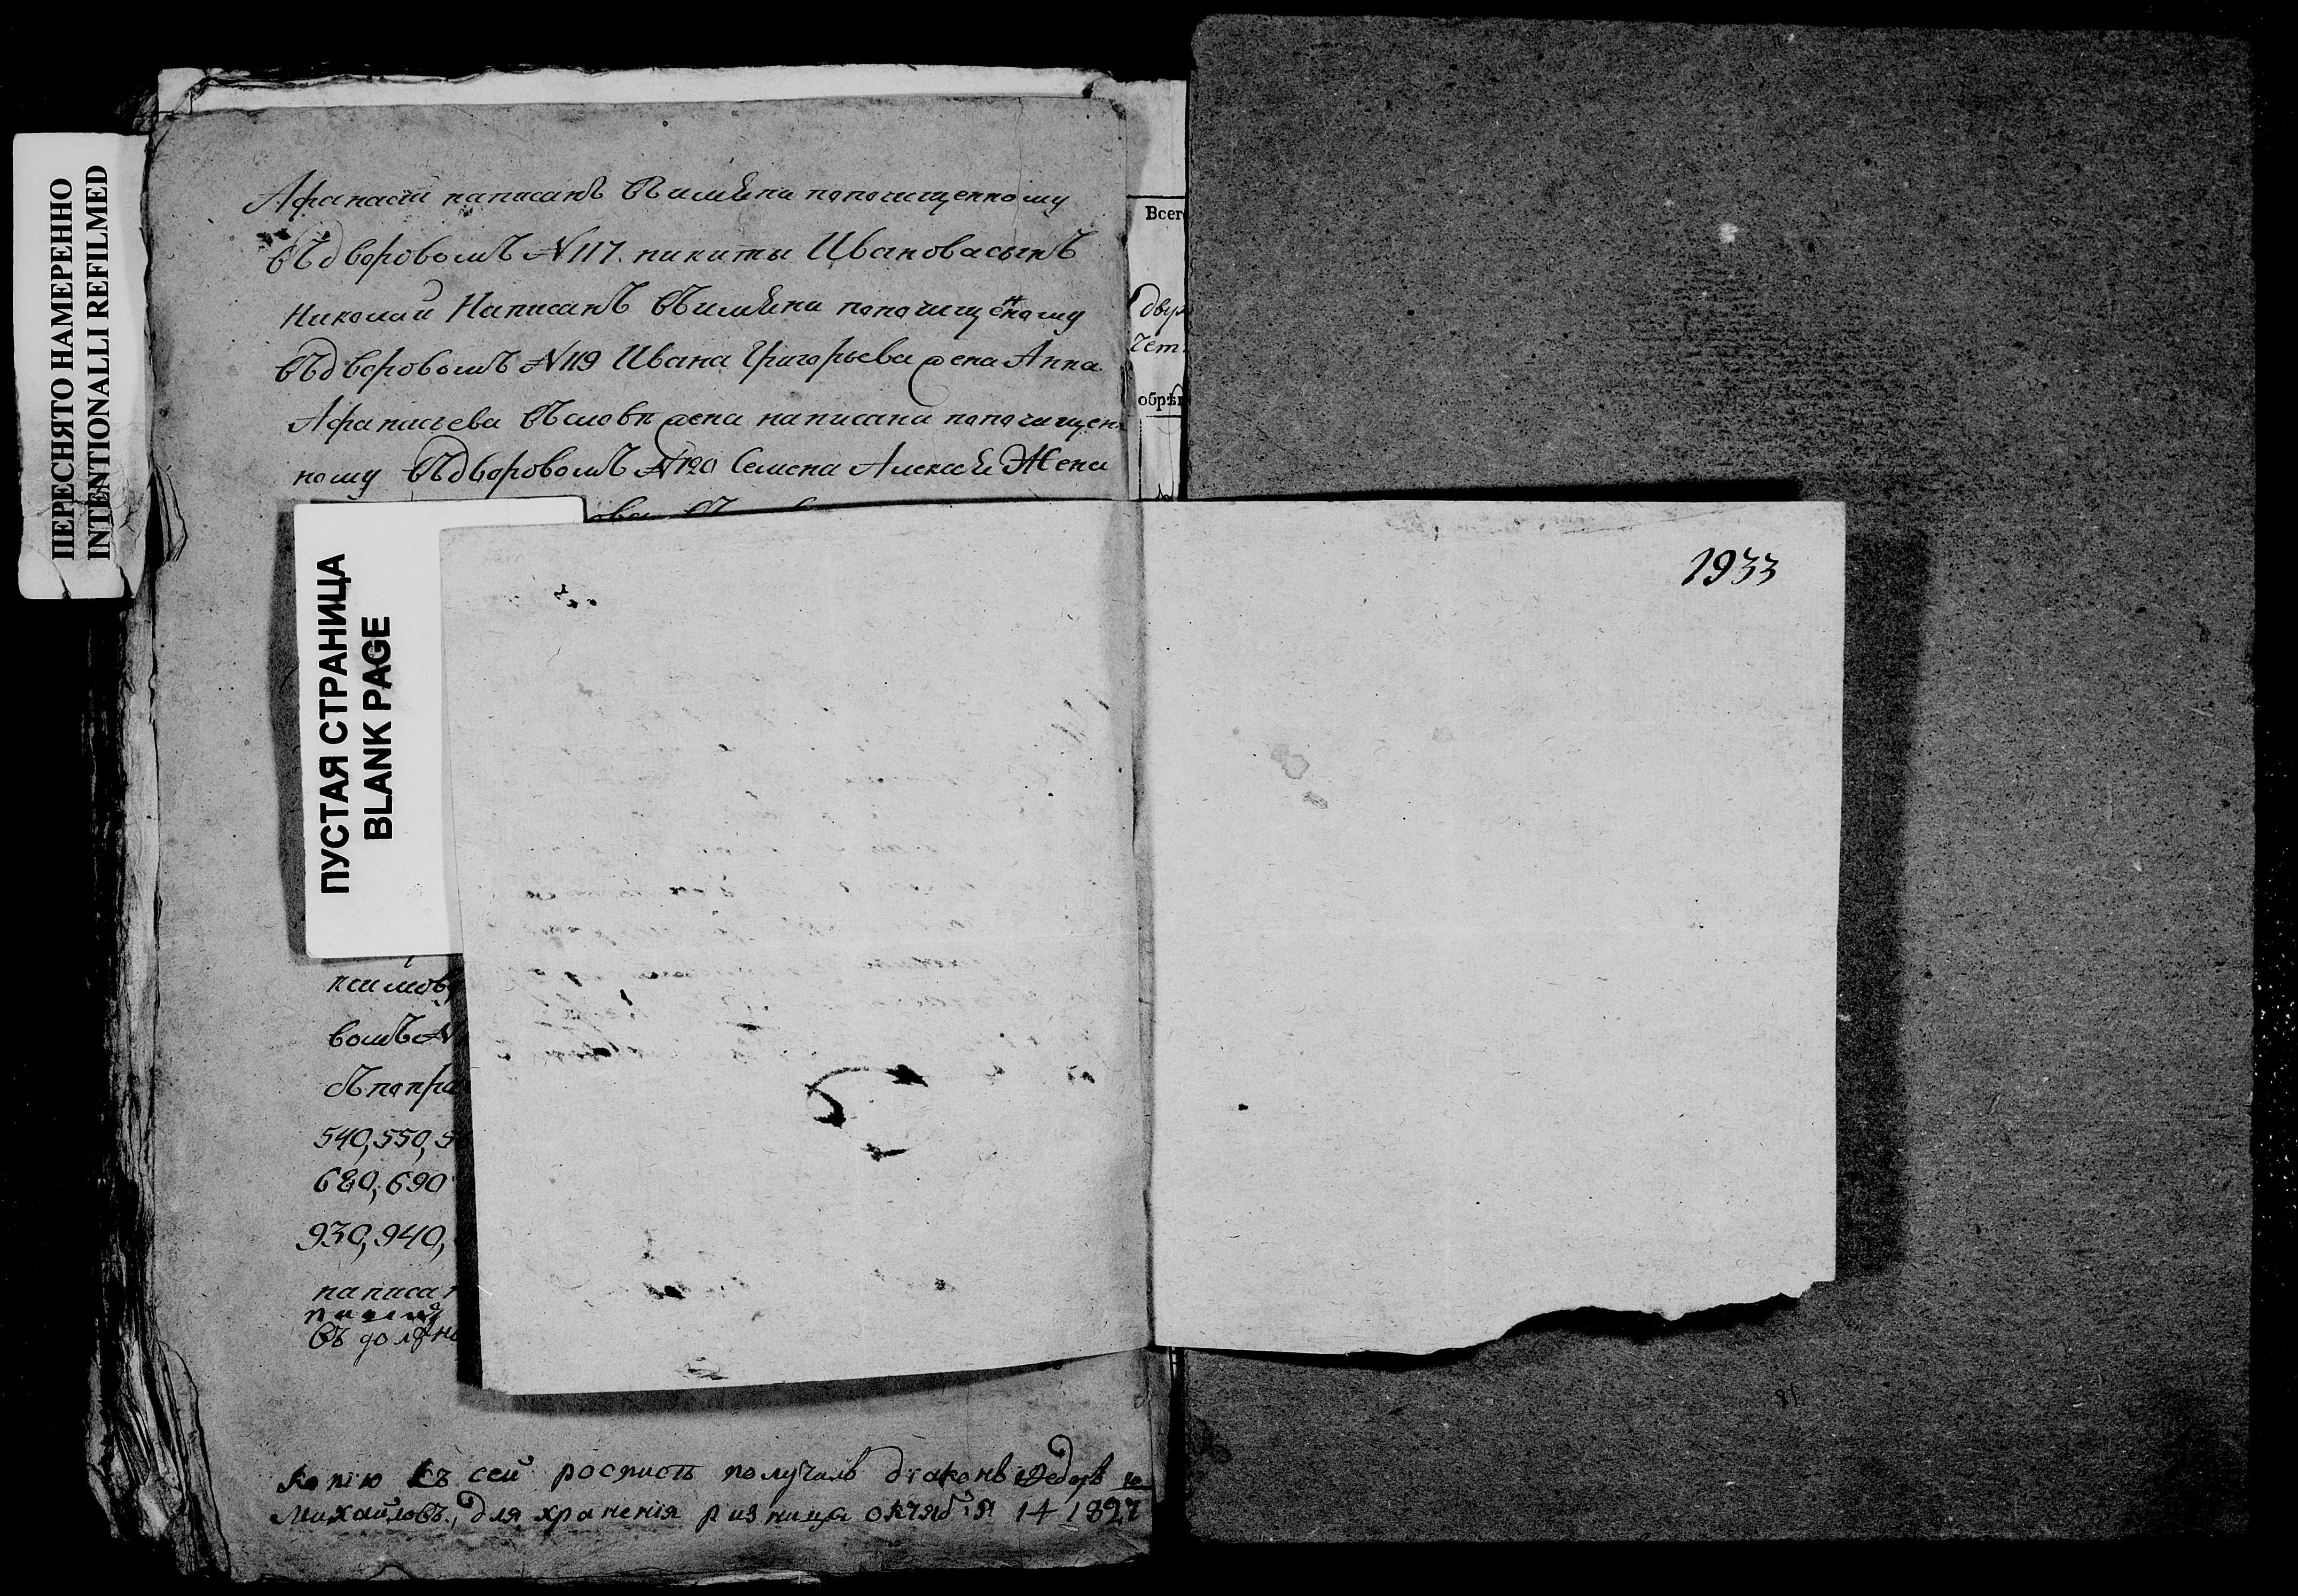 ПЕРЕСНЯТО НАМЕРЕННО
INTENTIONALLI REFILMED
Афанасій написанъ въ имѣни попочищенному
въ дворовомъ №117. никиты Ивановасынъ
Николай Написанъ въ имѣни попочищенному
въ дворовомъ №119 Ивана Григорьева жена Анна
Афанасьева въ словѣ жена написана попочищен
ному въ дворовомъ №120 Семена Алексѣ Жена
ова въ
ПУСТАЯ СТРАНИЦА
BLANK PAGE
вомъ №
540, 550, 5
680, 690
930, 940,
написа
въ должно
копію съ сей росписи получилъ діаконъ Федоръ
Михайловъ, для храненія ризница октября 14 1827
Всего
двух
чет
обрѣ
1933